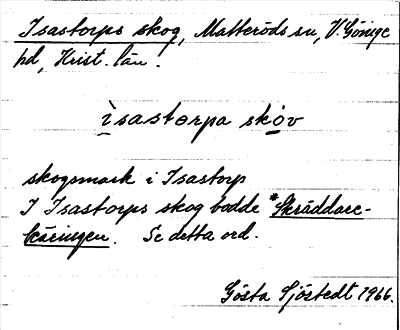 Isastorps skog, Matteröds sn, V. Göinge
hd, Krist. län.
ìsastɵrpa skóv
skogsmark i Isastorp
I Isastorps skog bodde *Skräddare-
käringen. Se detta ord.
Gösta Sjöstedt 1966.